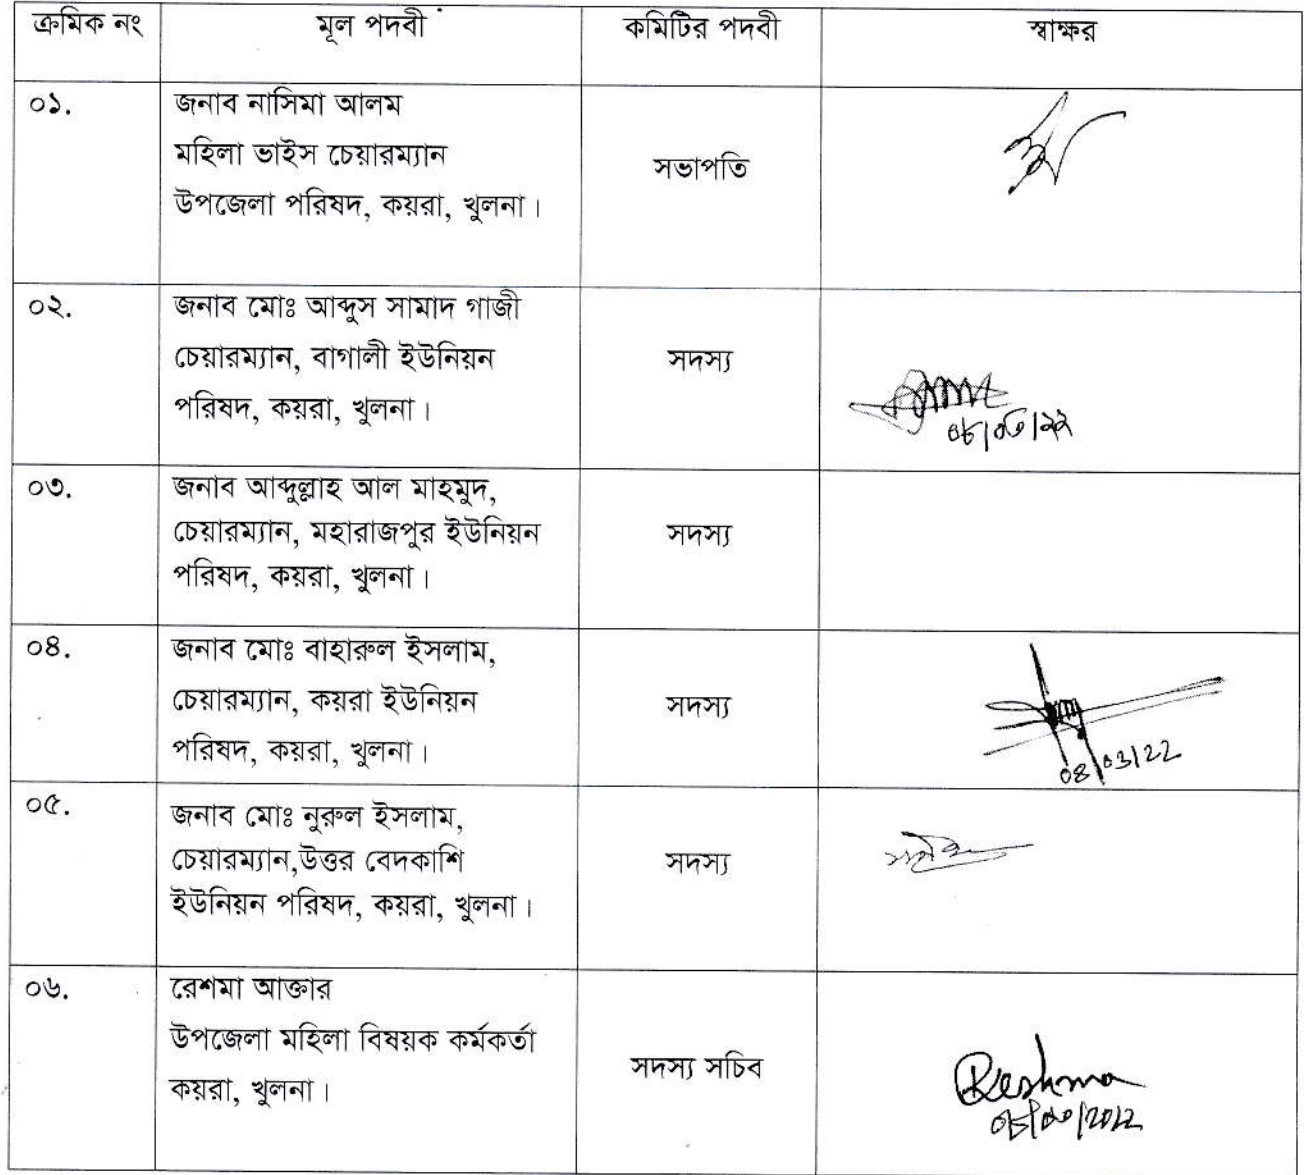 ক্রমিক নং মূল পদবী কমিটির পদবী স্বাক্ষর
০১. জনাব নাসিমা আলম
মহিলা ভাইস চেয়ারম্যান
সভাপতি
উপজেলা পরিষদ, কয়রা, খুলনা।
০২. জনাব মোঃ আব্দুস সামাদ গাজী
চেয়ারম্যান, বাগালী ইউনিয়ন
সদস্য
পরিষদ, কয়রা, খুলনা।
০৮/০৩/২২
০৩. জনাব আব্দুল্লাহ আল মাহমুদ,
চেয়ারম্যান, মহারাজপুর ইউনিয়ন
সদস্য
পরিষদ, কয়রা, খুলনা।
০৪. জনাব মোঃ বাহারুল ইসলাম,
চেয়ারম্যান, কয়রা ইউনিয়ন
সদস্য
পরিষদ, কয়রা, খুলনা।
08/03/22
০৫. জনাব মোঃ নুরুল ইসলাম,
চেয়ারম্যান,উত্তর বেদকাশি
সদস্য
ইউনিয়ন পরিষদ, কয়রা, খুলনা।
০৬. রেশমা আক্তার
উপজেলা মহিলা বিষয়ক কর্মকর্তা
সদস্য সচিব
কয়রা, খুলনা।
Reshma